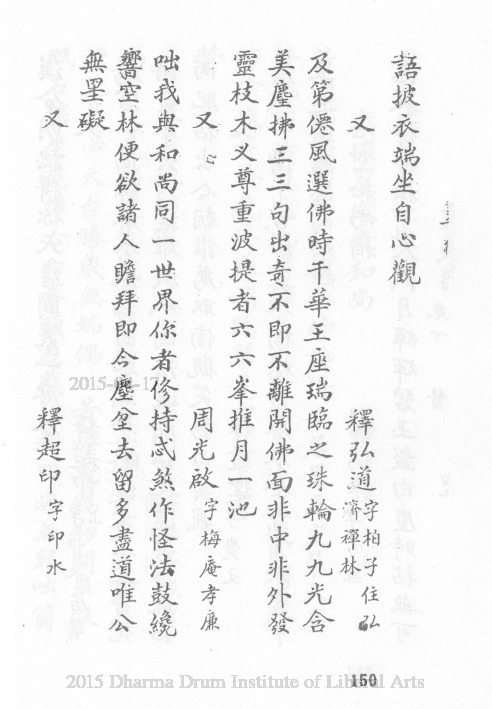 語披衣端坐自心觀
又
釋弘道字柏子住弘
濟禪林
及第僊風選佛時千華王座瑞臨之珠輪九九光含
美塵拂三三句出奇不即不離開佛面非中非外發
靈枝木义尊重波提者六六峯推月一池
又
周光啟字梅庵孝廉
咄我與和尚同一世界你者修持忒煞作怪法鼓纔
響空林便欲諸人瞻拜即今塵坌去留多盡道唯公
無罣礙
又
釋超印字印水
2015
150
2015 Dharma Drum Institute of Liberal Arts